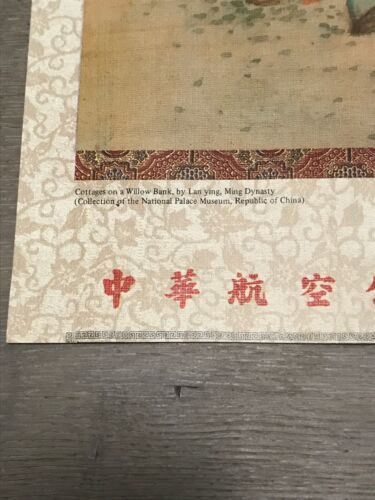 Cottages on a Willow Bank, by Lan ying, Ming Dynasty
(Collection of the National Palace Museum, Republic of China)
中華航空